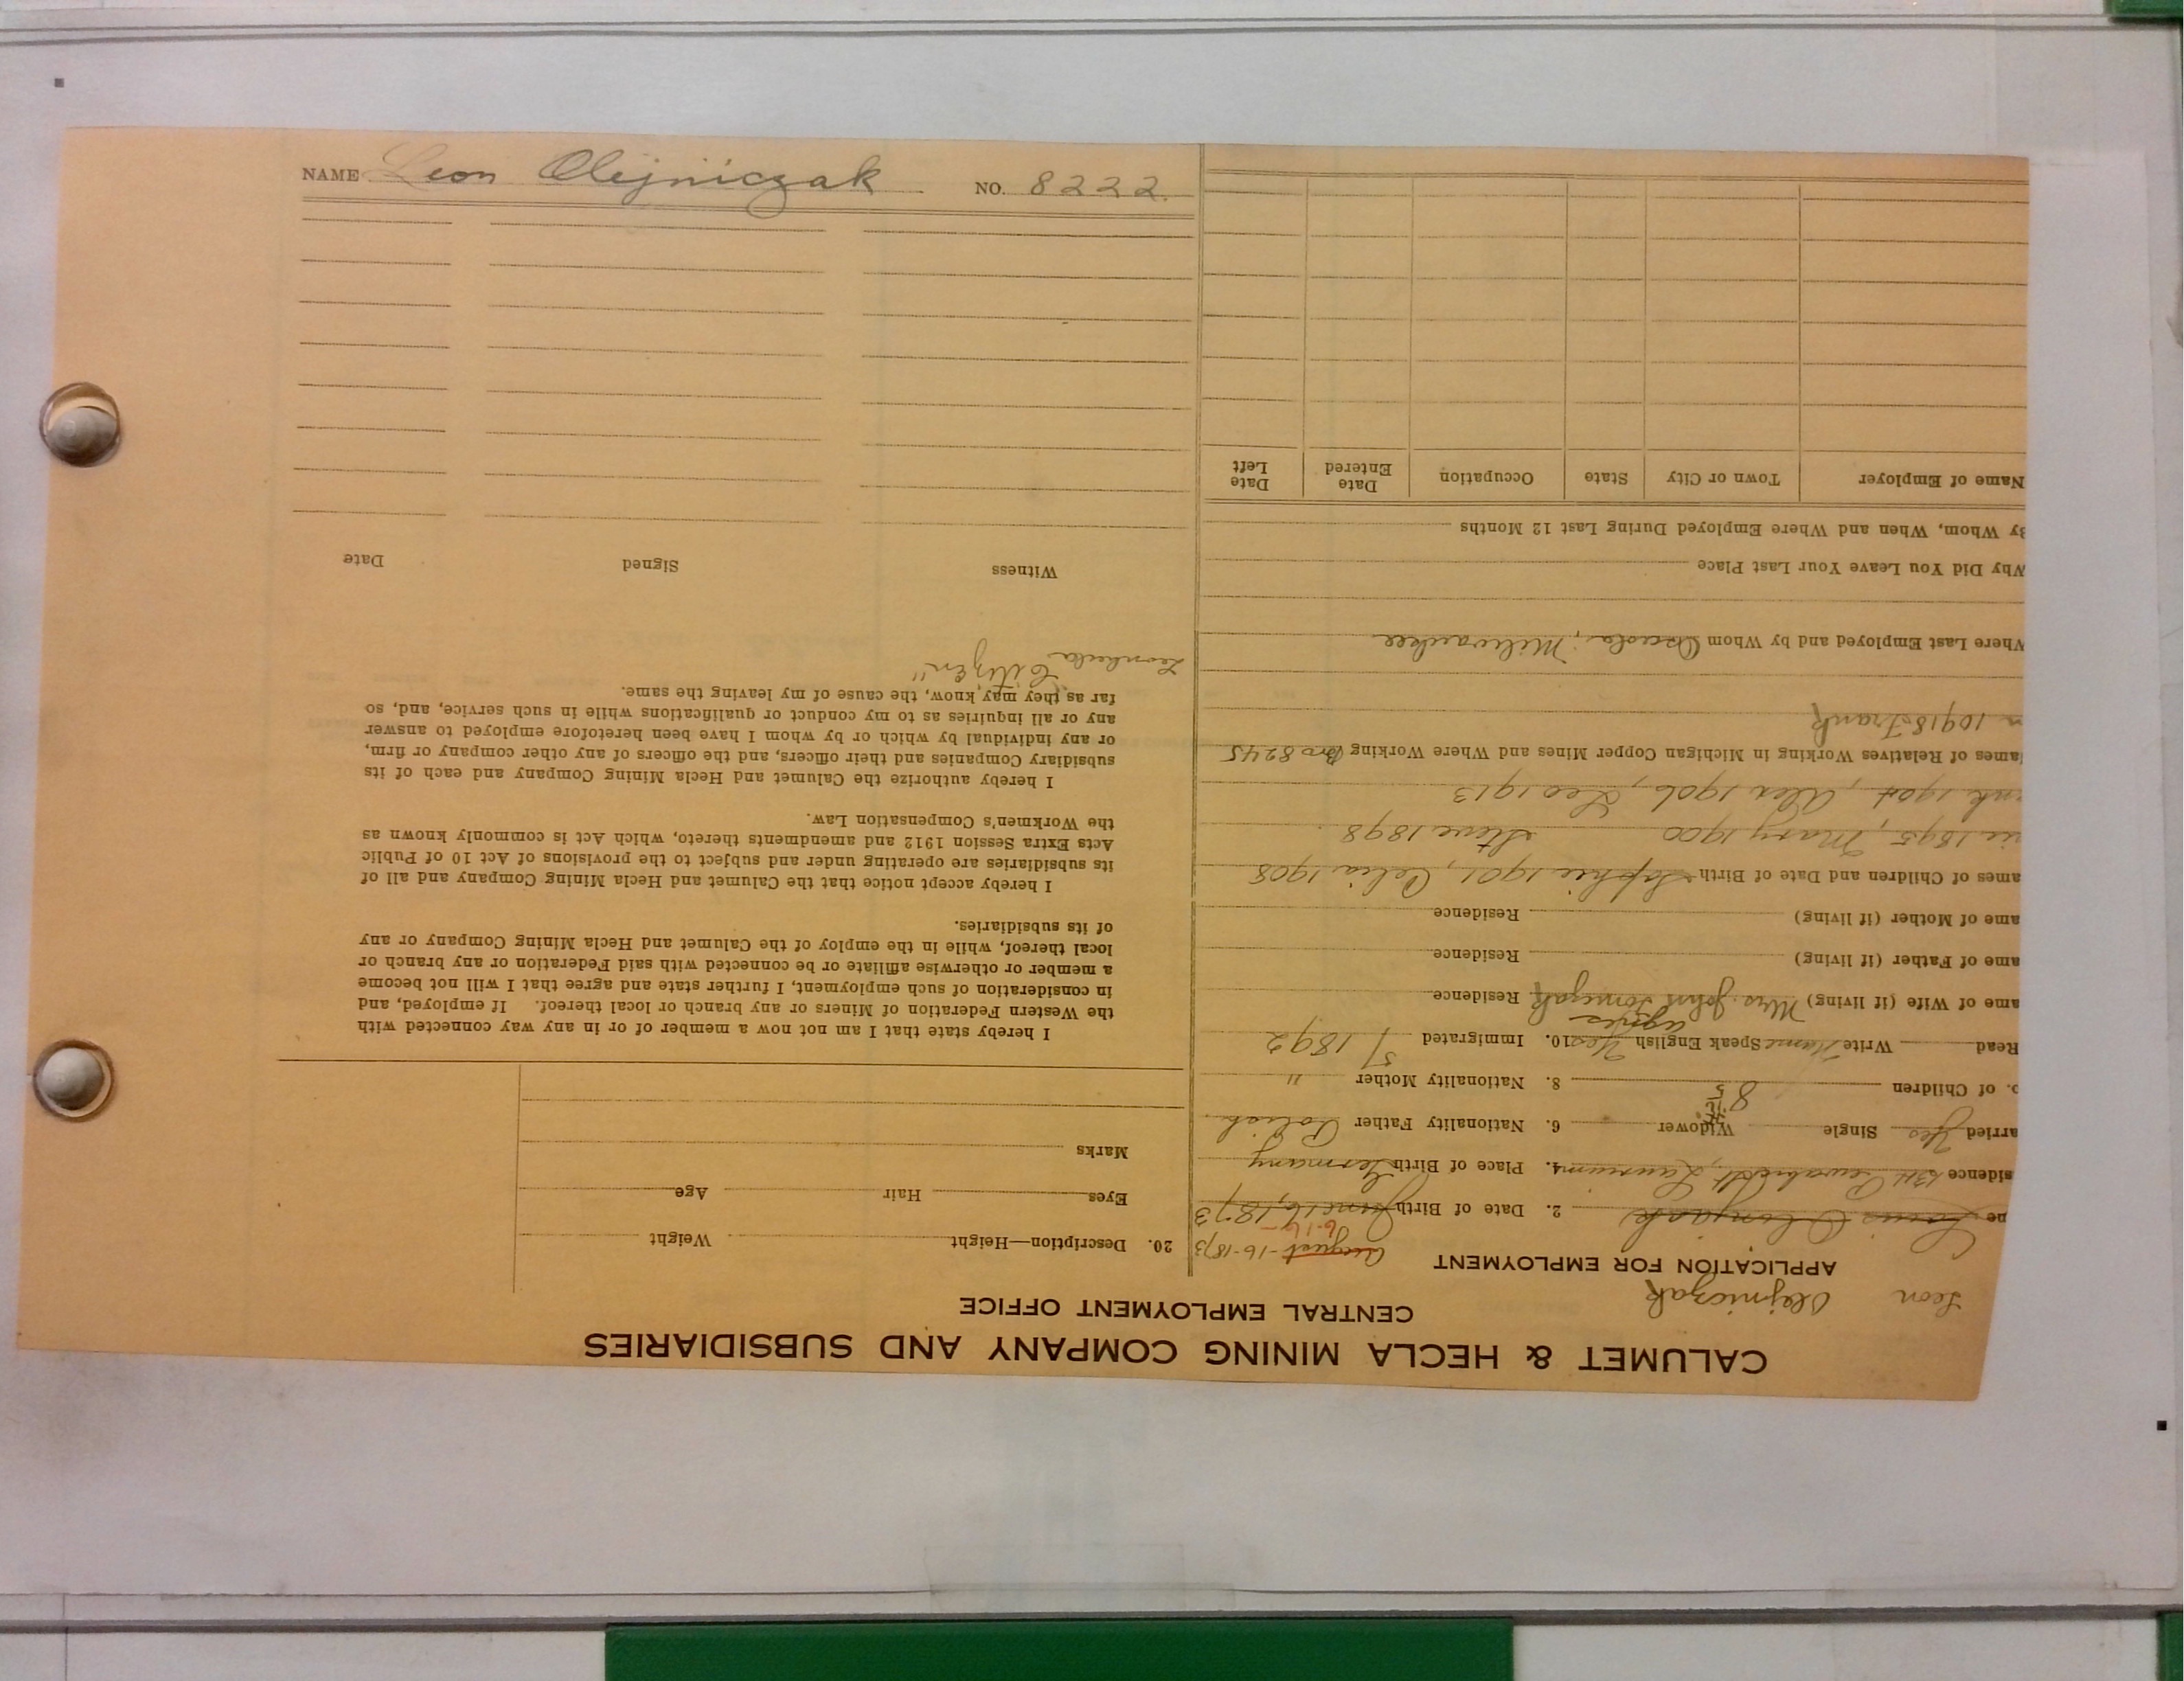 NAME Leon Olejniczak NO. 8222.
CALUMET & HECLA MINING COMPANY AND SUBSIDIARIES
CENTRAL EMPLOYMENT OFFICE
Leon Olejniczak
APPLICATION FOR EMPLOYMENT
August-16-1873
6-16-
me Louis Olonyack 2. Date of Birth June 16, 1873
sidence Laurium 4. Place of Birth Germany
arried Yes Single Widower 6. Nationality Father Polish
o. of Children 8 5 8. Nationality Mother "
Read Write Name Speak English Yes 10. Immigrated 1892
Agnes
ame of Wife (if living) Mrs. John Residence
ame of Father (if living) Residence
ame of Mother (if living) Residence
ames of Children and Date of Birth Sophie 1901, Celia 1908
ie 1895, Mary 1900 Steve 1898
nk 1904, Alex 1906, Leo 1913
ames of Relatives Working in Michigan Copper Mines and Where Working Bro 8245
n 10918 Frank
Where Last Employed and by Whom Osceola, Milwaukee
Why Did You Leave Your Last Place
By Whom, When and Where Employed During Last 12 Months
Name of Employer Town or City State Occupation Date Entered Date Left
20. Description—Height Weight
Eyes Hair Age
Marks
I hereby state that I am not now a member of or in any way connected with
the Western Federation of Miners or any branch or local thereof. If employed, and
in consideration of such employment, I further state and agree that I will not become
a member or otherwise affiliate or be connected with said Federation or any branch or
local thereof, while in the employ of the Calumet and Hecla Mining Company or any
of its subsidiaries.
I hereby accept notice that the Calumet and Hecla Mining Company and all of
its subsidiaries are operating under and subject to the provisions of Act 10 of Public
Acts Extra Session 1912 and amendments thereto, which Act is commonly known as
the Workmen's Compensation Law.
I hereby authorize the Calumet and Hecla Mining Company and each of its
subsidiary Companies and their officers, and the officers of any other company or firm,
or any individual by which or by whom I have been heretofore employed to answer
any or all inquiries as to my conduct or qualifications while in such service, and, so
far as they may know, the cause of my leaving the same.
"Citizen"
Witness Signed Date